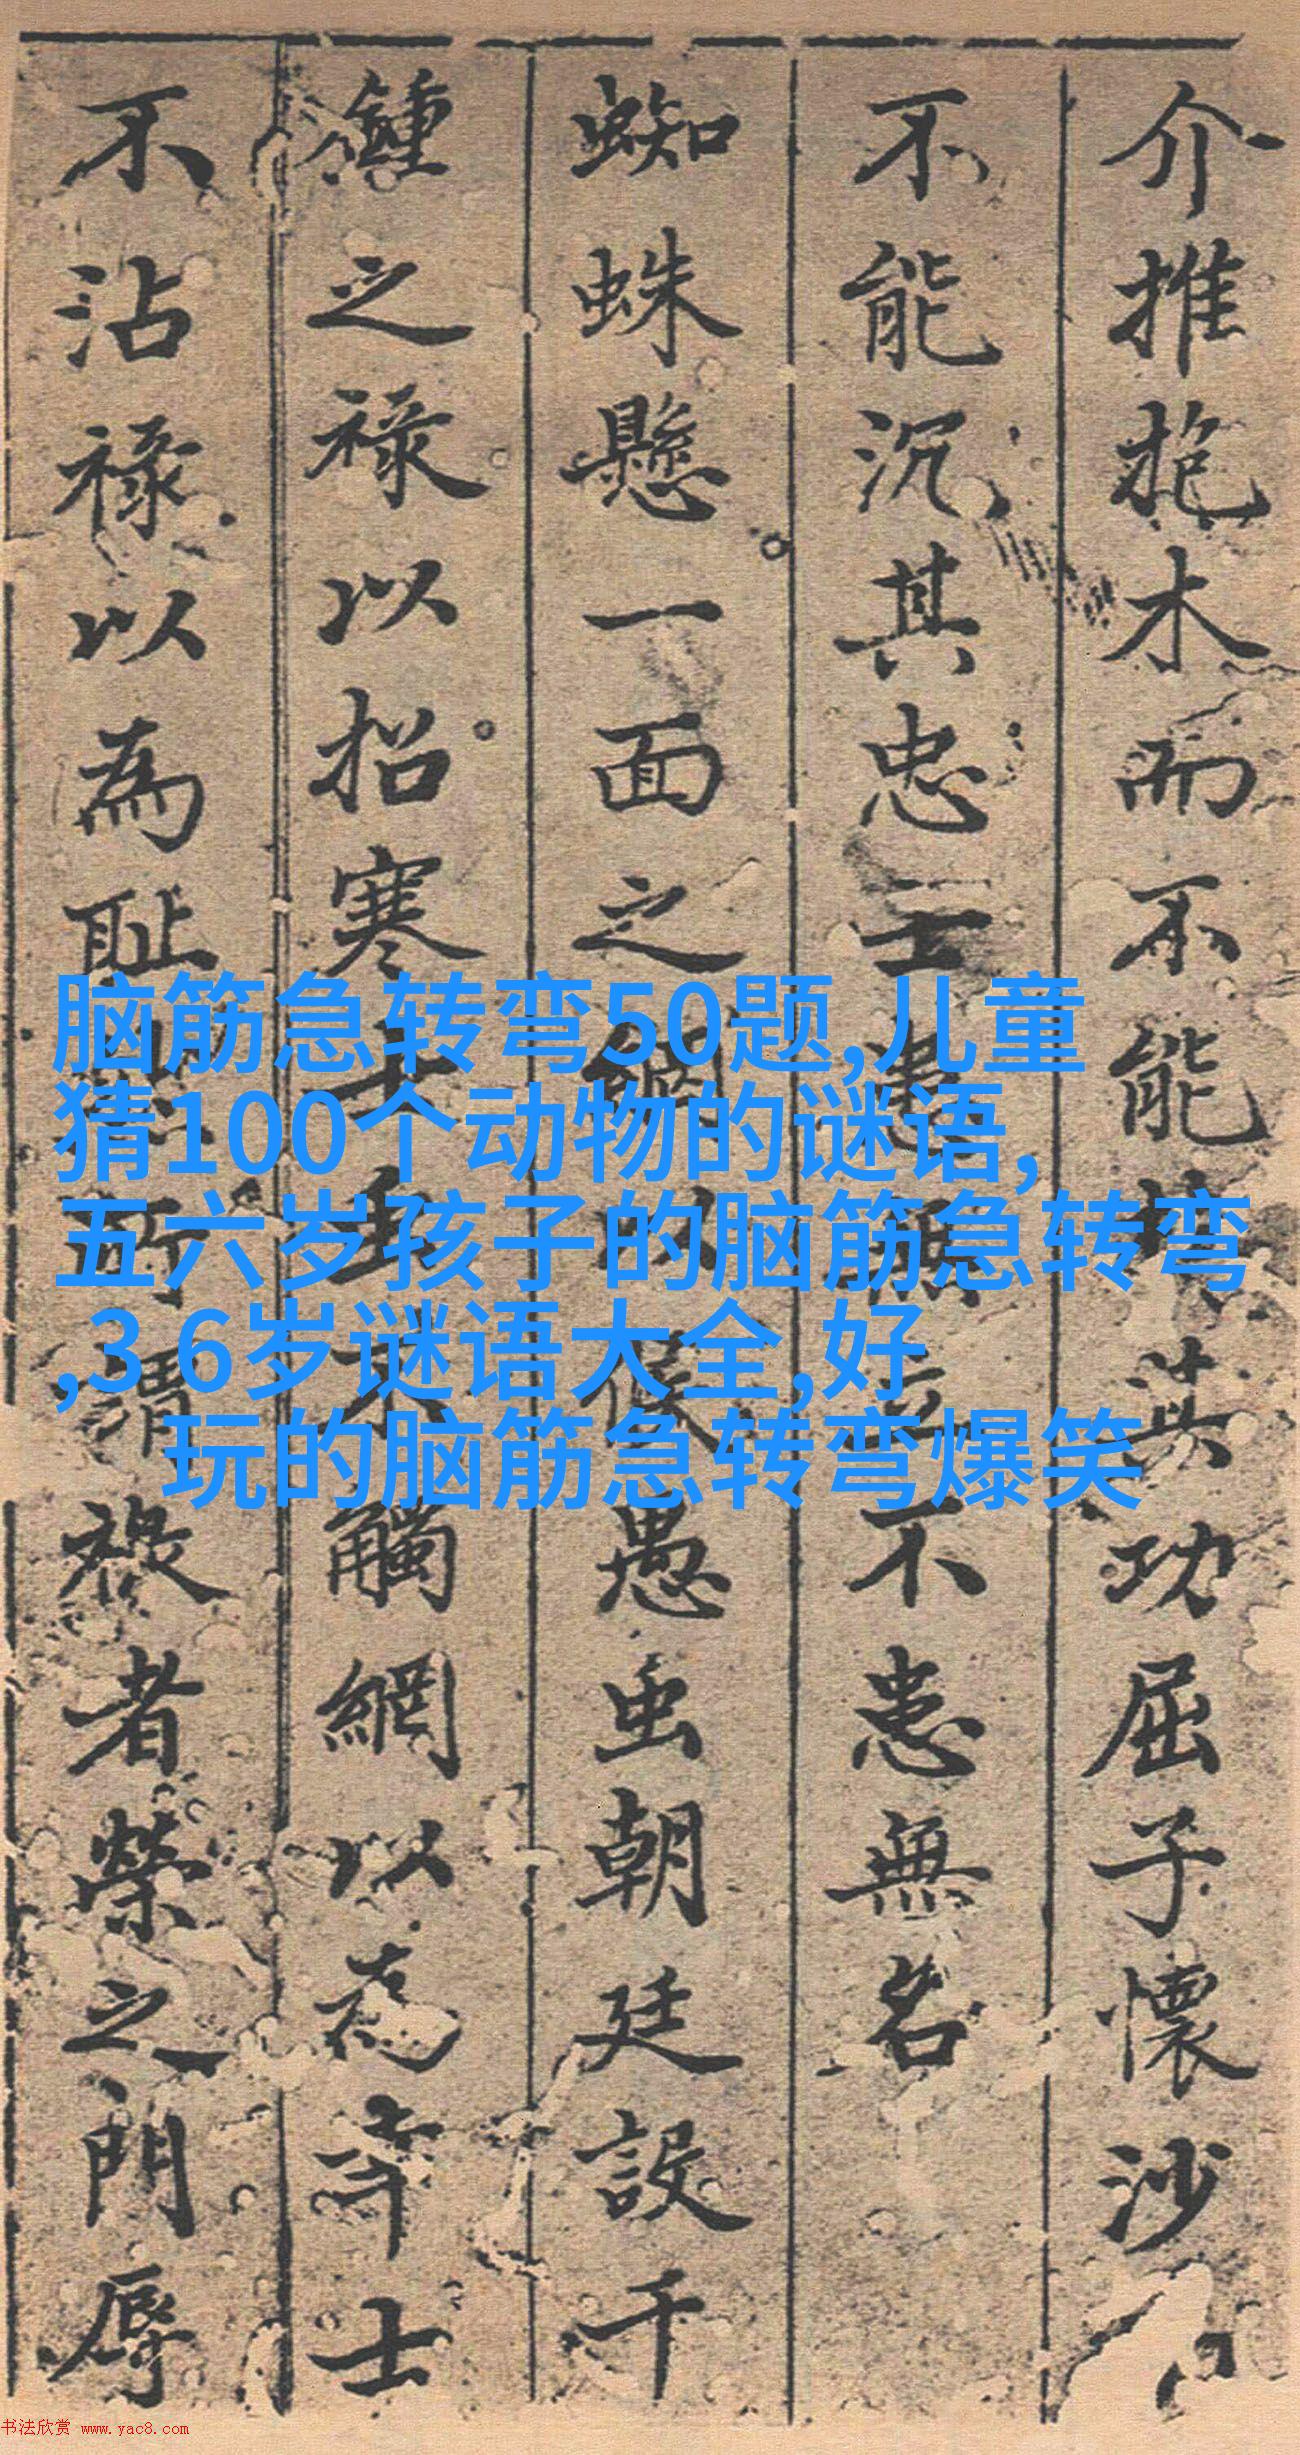 介推抱木而不能 其功屈子懷沙
不能沉其忠士患無立不患無名
蜘蛛懸一面之網以候愚虫朝廷設千
鍾之祿以招寒士 不觸網以為 士
不沾祿以為耻 所謂祿者榮之門辱
脑筋急转弯50题,儿童
猜100个动物的谜语,
五六岁孩子的脑筋急转弯
,3 6岁谜语大全,好
玩的脑筋急转弯爆笑
书法欣赏 www.yac8.com